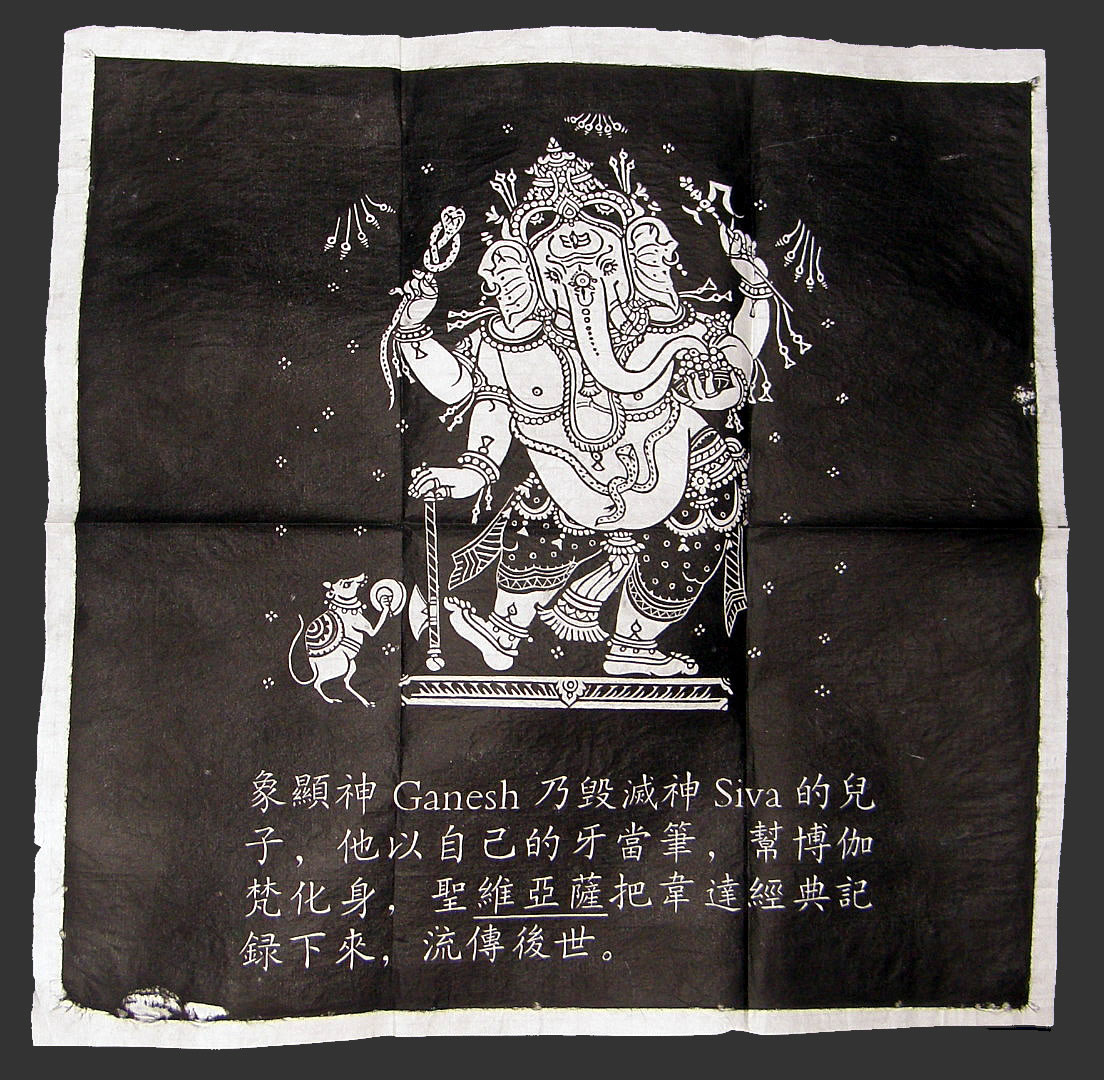 象顯神 Ganesh 乃毀滅神 Siva 的兒
子，他以自己的牙當筆，幫博伽
梵化身，聖維亞薩把韋達經典記
録下來，流傳後世。